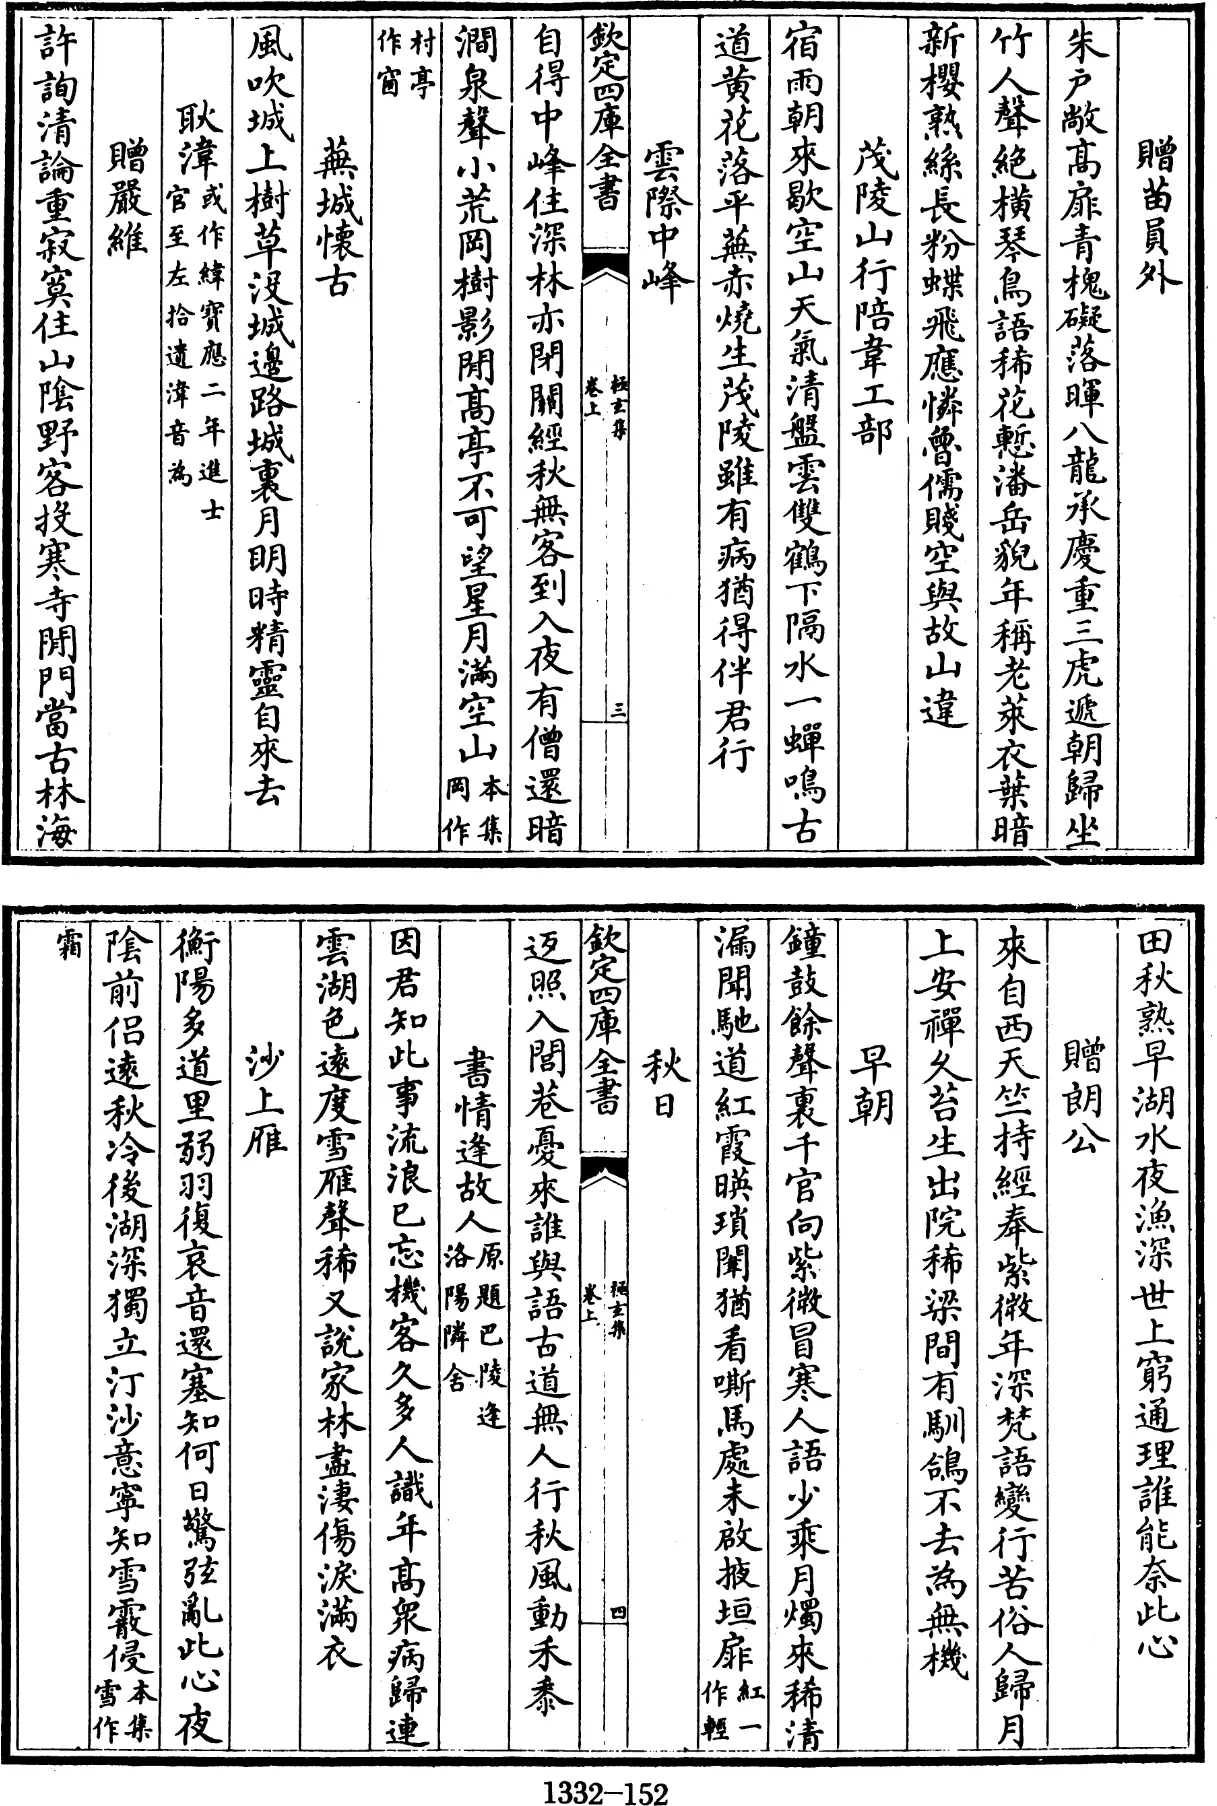 贈苗員外
朱户敞高扉青槐礙落暉八龍承慶重三虎遞朝歸坐
竹人聲絶横琴鳥語稀花慙潘岳貌年稱老萊衣葉暗
新櫻熟絲長粉蝶飛應憐魯儒賤空與故山違
茂陵山行陪韋工部
宿雨朝來歇空山天氣清盤雲雙鶴下隔水一蟬鳴古
道黄花落平蕪赤燒生茂陵雖有病猶得伴君行
雲際中峰
欽定四庫全書
極玄集
卷上
三
自得中峰住深林亦閉關經秋無客到入夜有僧還暗
澗泉聲小荒岡樹影閒高亭不可望星月滿空山本集
岡作
村亭
作窗
蕪城懐古
風吹城上樹草没城邊路城裏月明時精靈自來去
耿湋或作緯寶應二年進士
官至左拾遺湋音為
贈嚴維
許詢清論重寂寞住山陰野客投寒寺閒門當古林海
田秋熟早湖水夜漁深世上窮通理誰能奈此心
贈朗公
來自西天竺持經奉紫微年深梵語變行苦俗人歸月
上安禪久苔生出院稀梁間有馴鴿不去為無機
早朝
鐘鼓餘聲裏千官向紫微冒寒人語少乘月燭來稀清
漏聞馳道紅霞暎瑣闈猶看嘶馬處未啟掖垣扉紅一
作輕
秋日
欽定四庫全書
極玄集
卷上
四
返照入閭巷憂來誰與語古道無人行秋風動禾黍
書情逢故人原題巴陵逢
洛陽隣舍
因君知此事流浪已忘機客久多人識年高衆病歸連
雲湖色遠度雪雁聲稀又說家林盡淒傷淚滿衣
沙上雁
衡陽多道里弱羽復哀音還塞知何日驚弦亂此心夜
陰前侶遠秋冷後湖深獨立汀沙意寧知雪霰侵本集
雪作
霜
1332-152